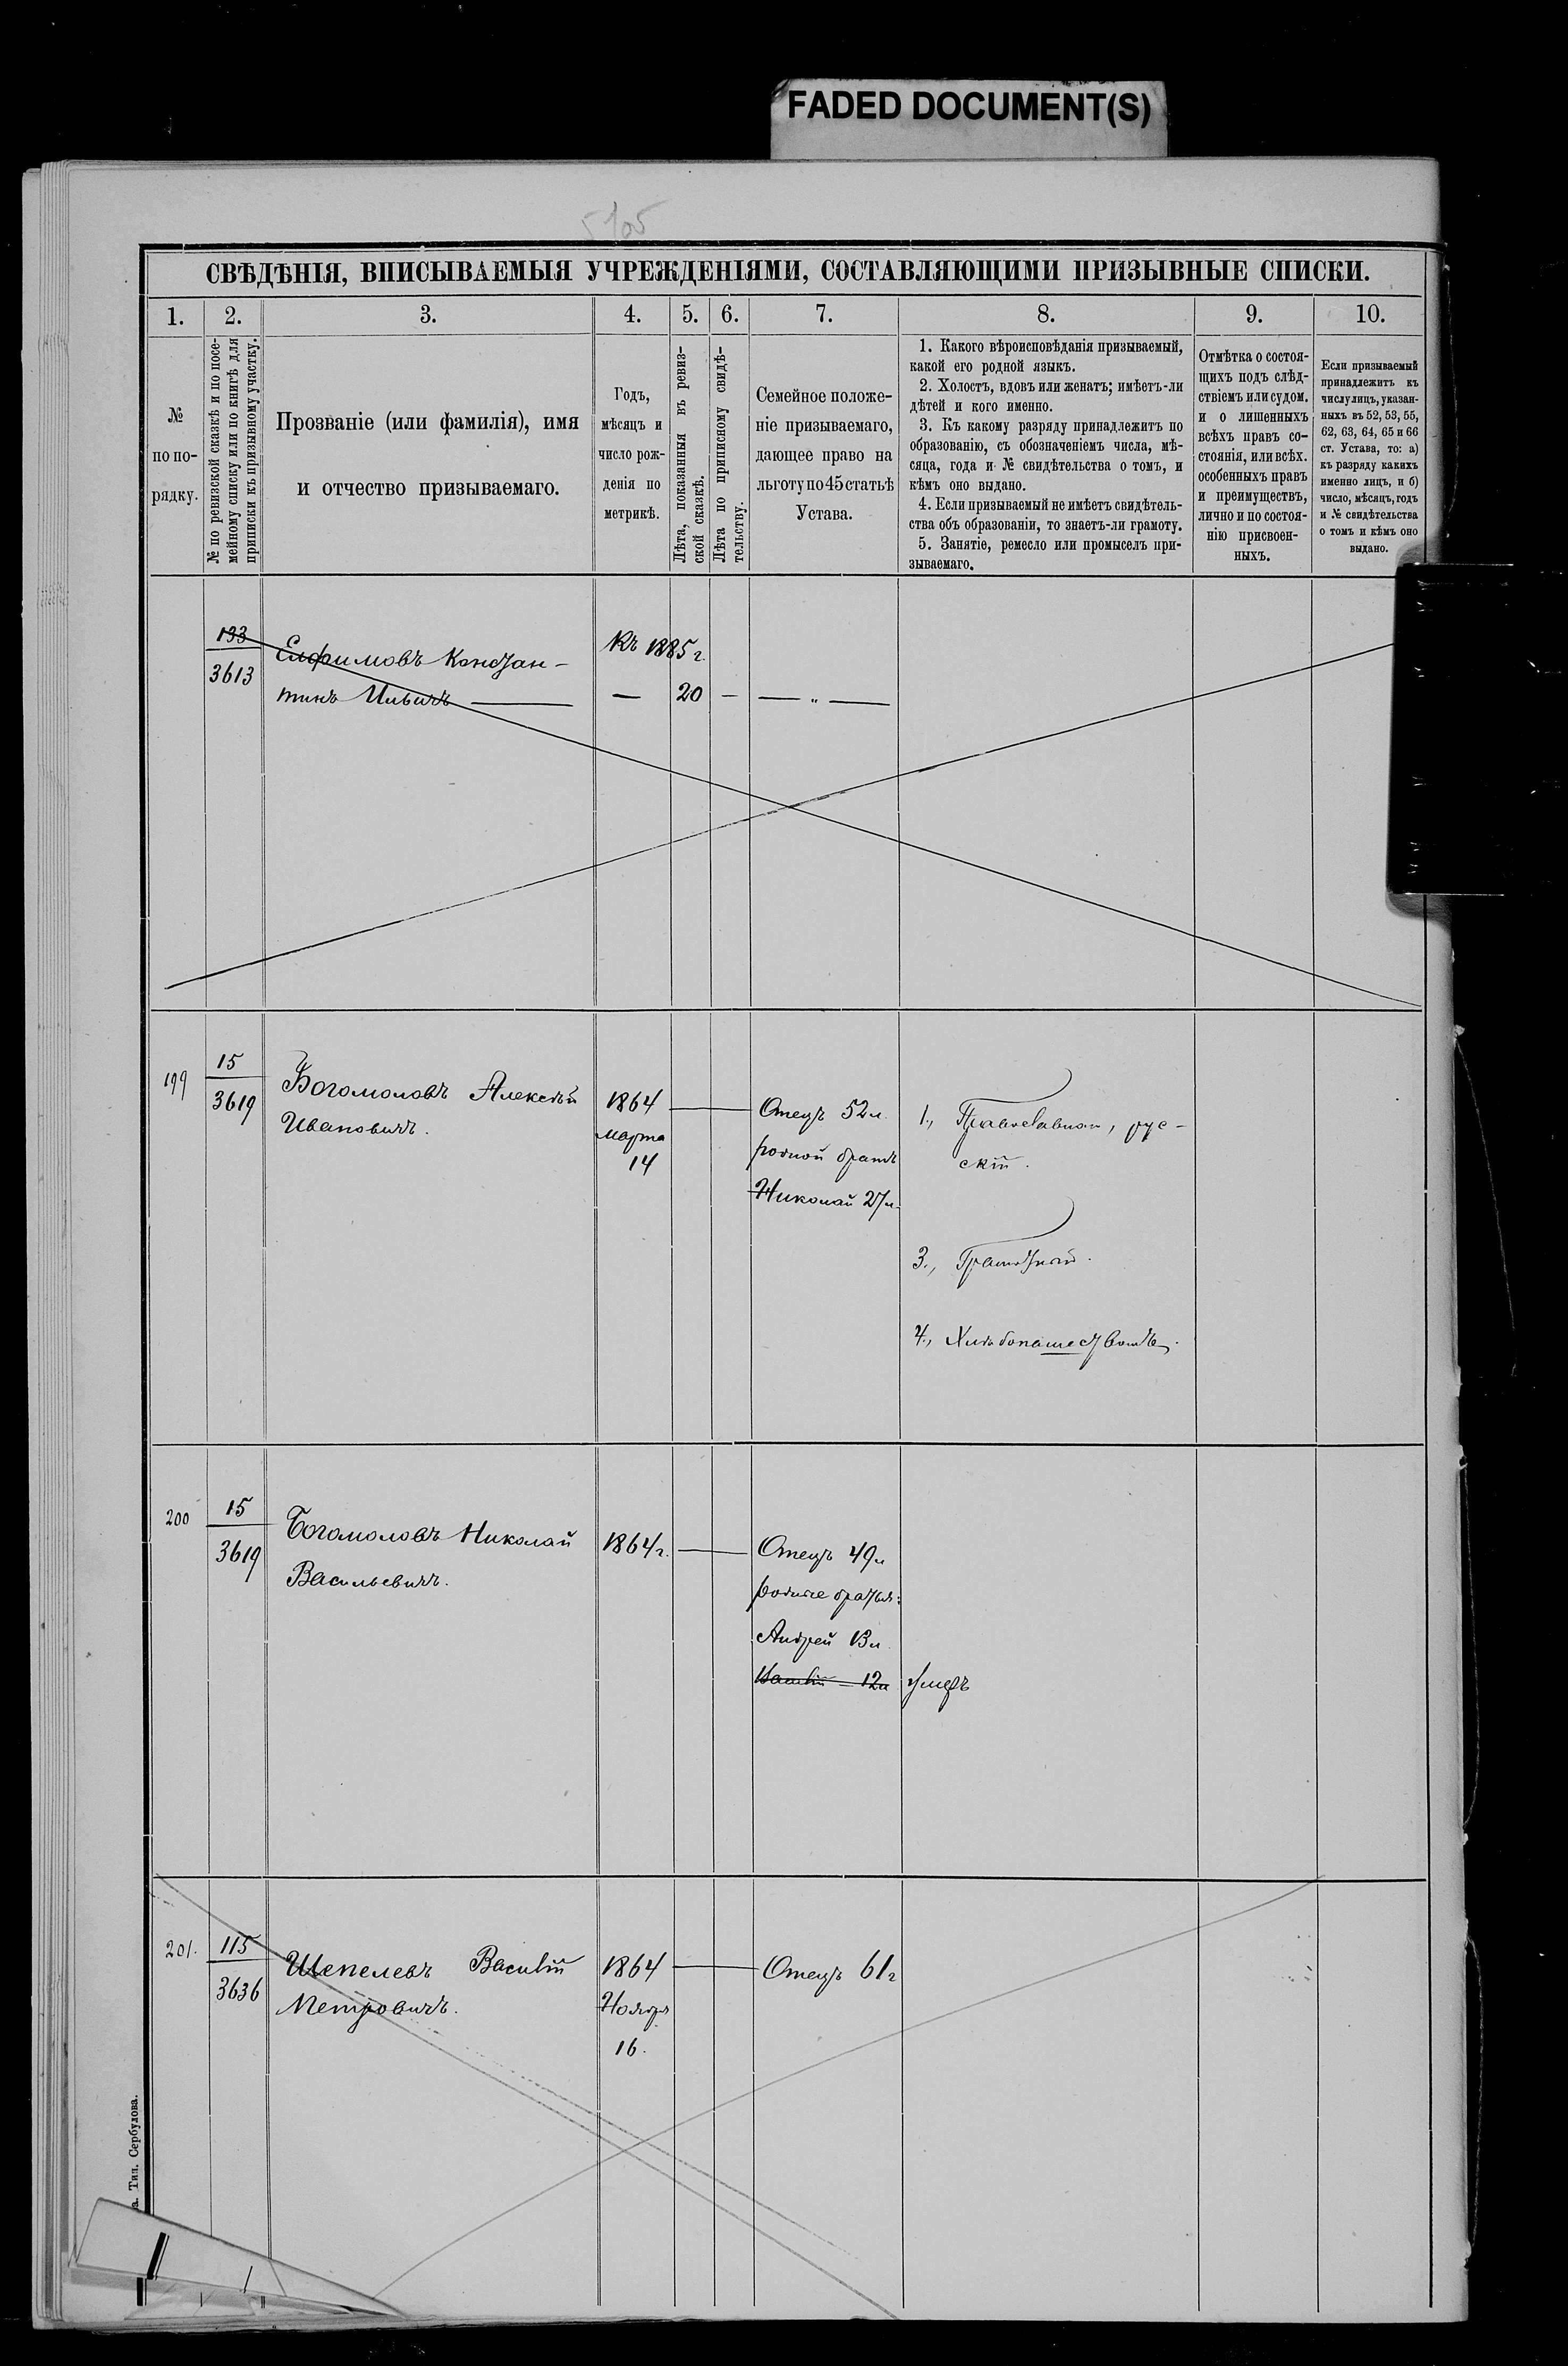 FADED DOCUMENT(S)
5105
СВѢДѢНІЯ, ВПИСЫВАЕМЫЯ УЧРЕЖДЕНІЯМИ, СОСТАВЛЯЮЩИМИ ПРИЗЫВНЫЕ СПИСКИ.
1. 2. 3. 4. 5. 6. 7. 8. 9. 10.
№
по по-
рядку.
№ по ревизской сказкѣ и по посе-
мейному списку или по книгѣ для
приписки къ призывному участку.
Прозваніе (или фамилія), имя
и отчество призываемаго.
Годъ,
мѣсяцъ и
число рож-
денія по
метрикѣ.
Лѣта, показанныя въ ревиз-
ской сказкѣ.
Лѣта по приписному свидѣ-
тельству.
Семейное положе-
ніе призываемаго,
дающее право на
льготу по 45 статьѣ
Устава.
1. Какого вѣроисповѣданія призываемый,
какой его родной языкъ.
2. Холостъ, вдовъ или женатъ; имѣетъ-ли
дѣтей и кого именно.
3. Къ какому разряду принадлежитъ по
образованію, съ обозначеніемъ числа, мѣ-
сяца, года и № свидѣтельства о томъ, и
кѣмъ оно выдано.
4. Если призываемый не имѣетъ свидѣтель-
ства объ образованіи, то знаетъ-ли грамоту.
5. Занятіе, ремесло или промыселъ при-
зываемаго.
Отмѣтка о состоя-
щихъ подъ слѣд-
ствіемъ или судом.
и о лишенныхъ
всѣхъ правъ со-
стоянія, или всѣх.
особенныхъ правъ
и преимуществъ,
лично и по состоя-
нію присвоен-
ныхъ.
Если призываемый
принадлежитъ къ
числу лицъ, указан-
ныхъ въ 52, 53, 55,
62, 63, 64, 65 и 66
ст. Устава, то: а)
къ разряду какихъ
именно лицъ, и б)
число, мѣсяцъ, годъ
и № свидѣтельства
о томъ и кѣмъ оно
выдано.
193
3613
Елфимовъ Констан-
тинъ Ильичъ —
Къ 1885 г.
— 20 — — „ —
199
15
3619
Богомоловъ Алексѣй
Ивановичъ.
1864
марта
14
Отецъ 52 л.
родной братъ
Николай 27 л.
1., Православная, рус-
скій.
3., Грамотный.
4., Хлѣбопашествомъ.
200
15
3619
Богомоловъ Николай
Васильевичъ.
1864 г.
Отецъ 49 л
родные братья:
Андрей 13 л
Василій — 12 л умеръ
201.
115
3636
Шепелевъ Василій
Петровичъ.
1864
Ноября
16.
Отецъ 61 г
а. Тип. Сербулова.